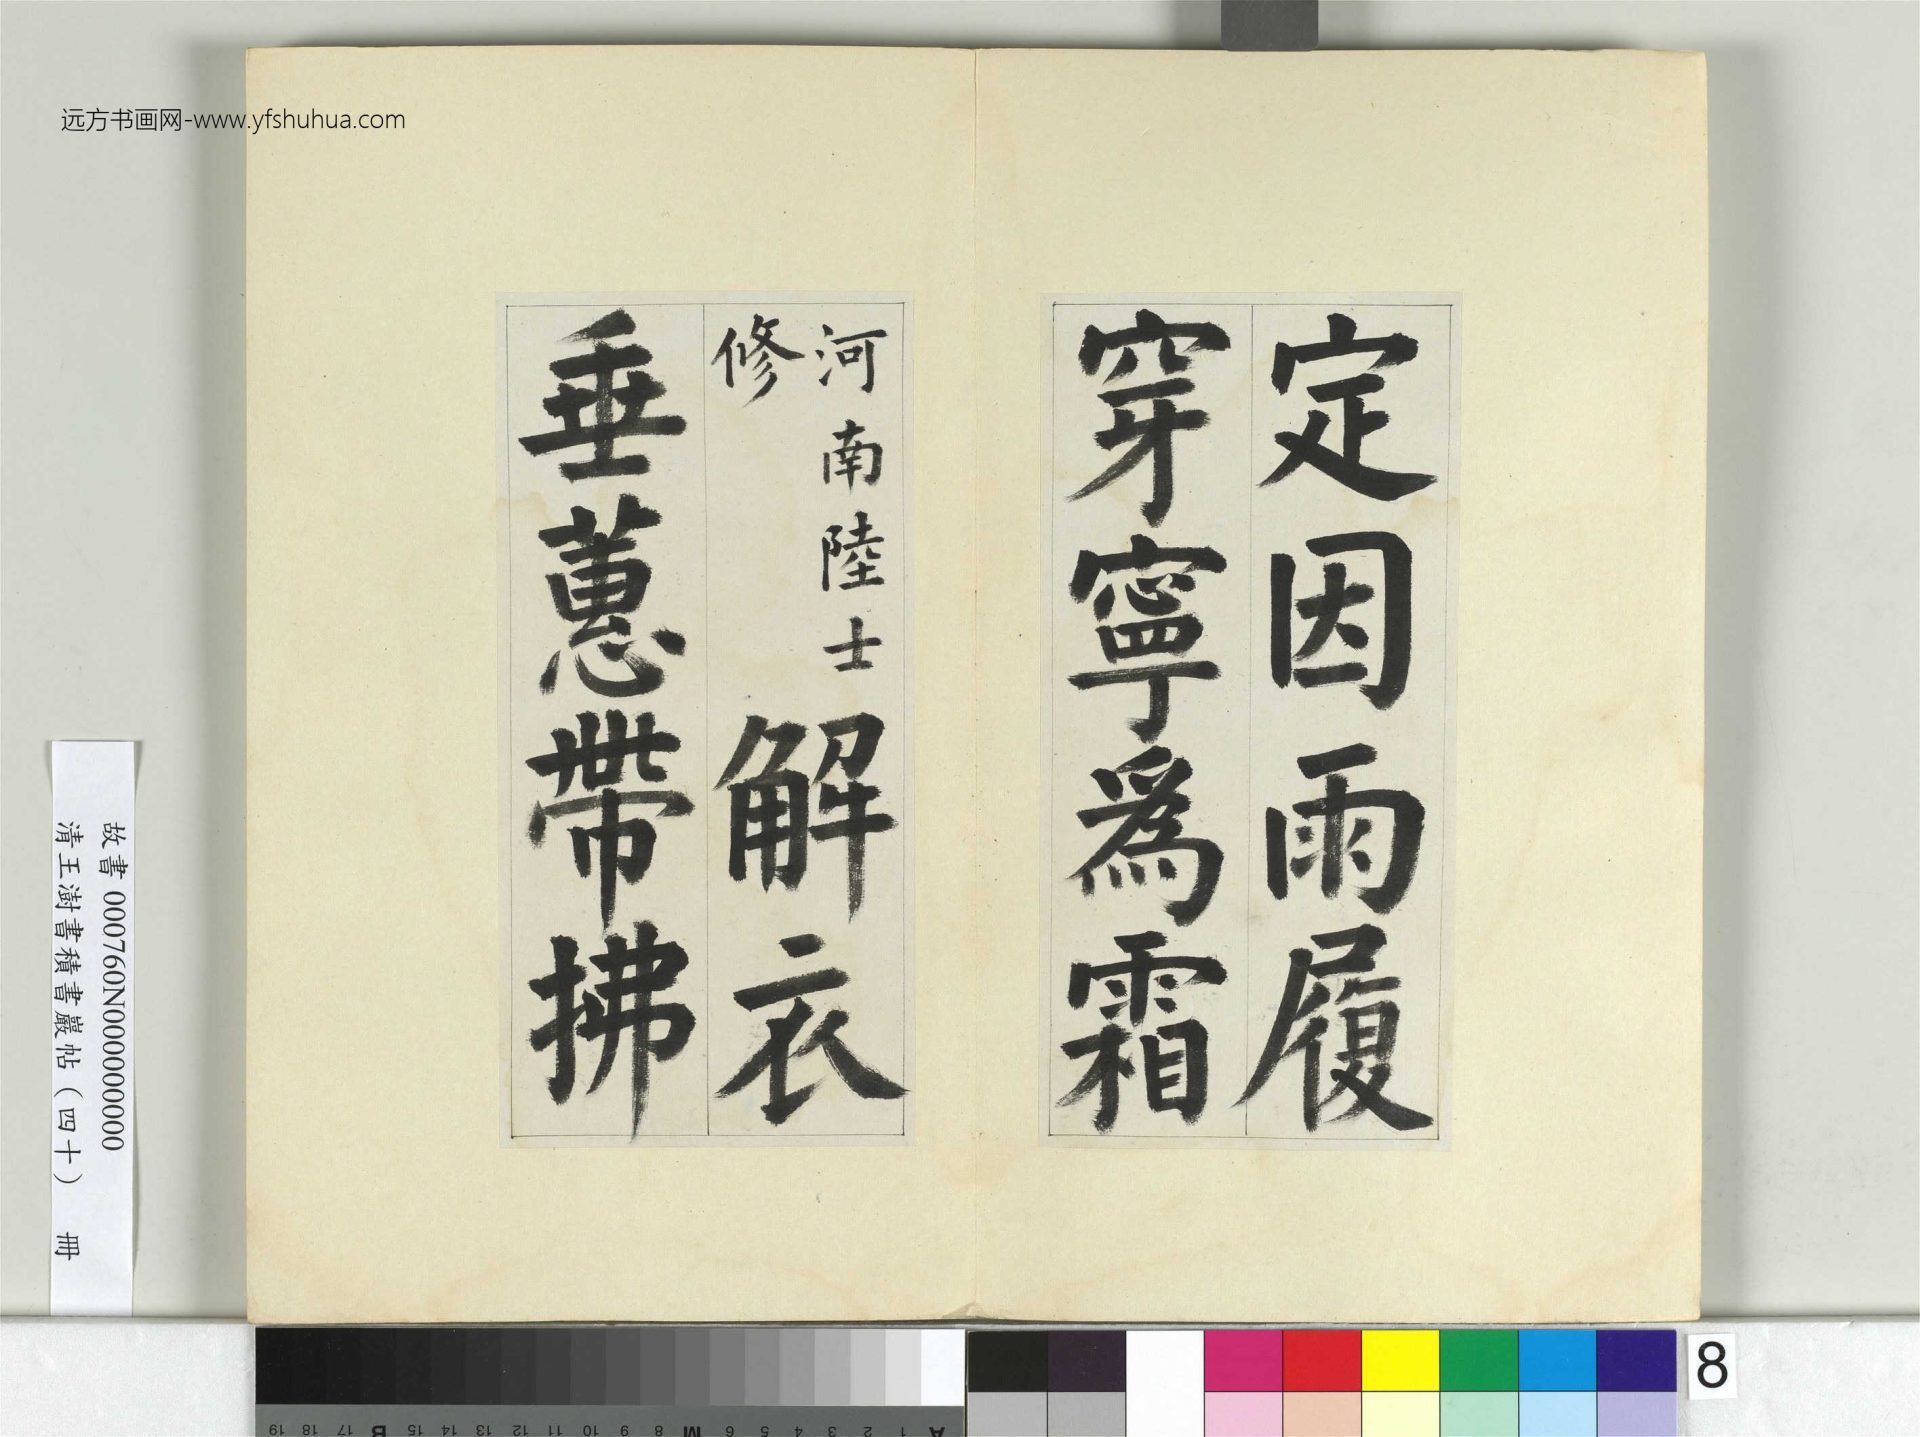 远方书画网-www.yfshuhua.com
定因雨履
穿寧爲霜
河南陸士
修
解衣
垂蕙帶拂
故書 000760N000000000
清王澍書積書巖帖（四十） 冊
8
A 1 2 3 4 5 6 M 8 9 10 11 12 13 14 15 B 17 18 19